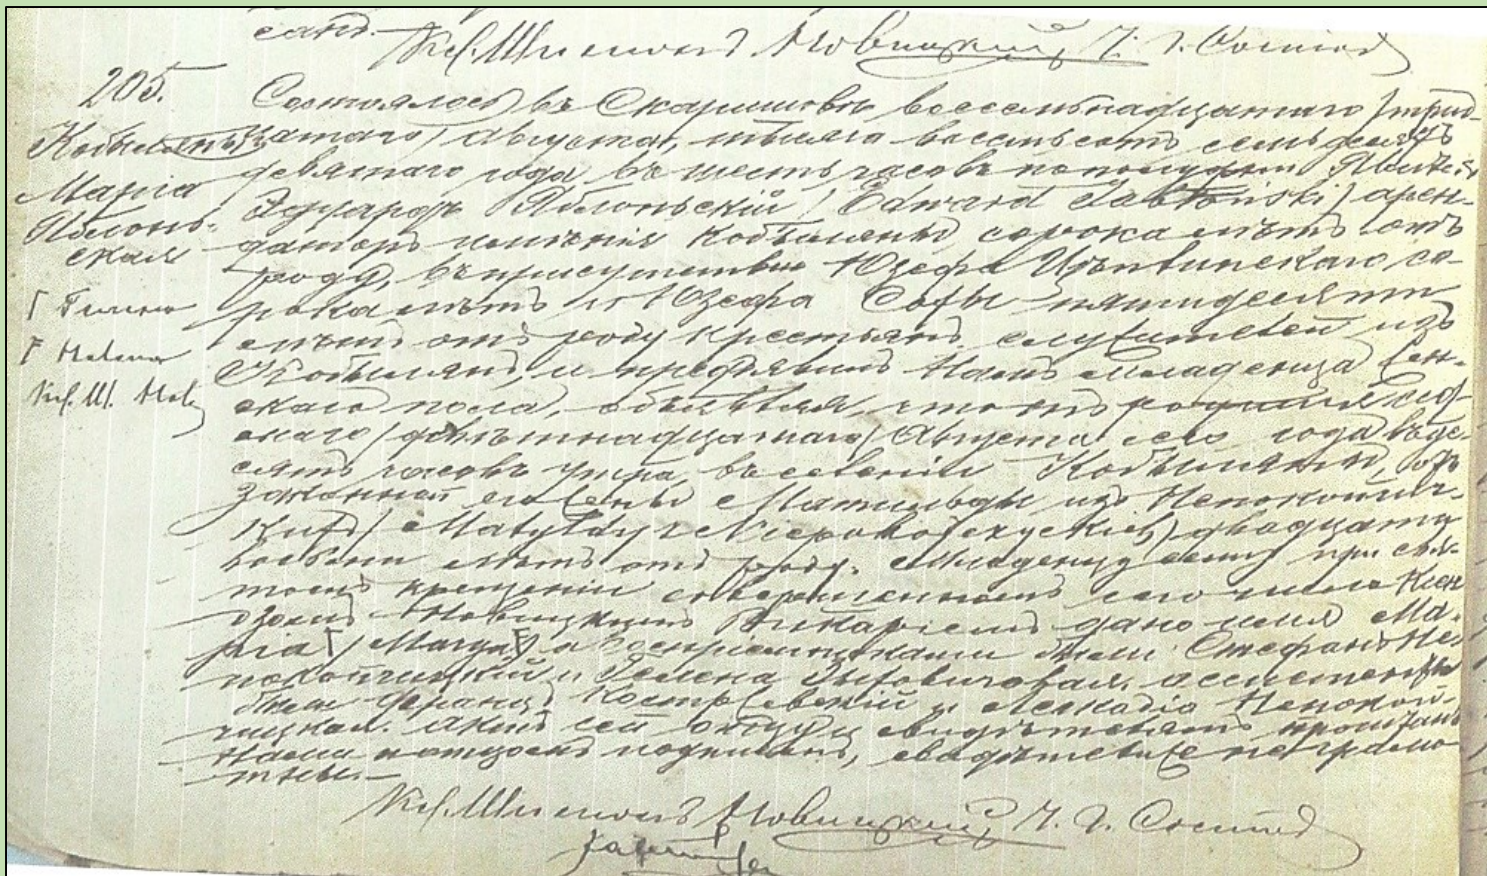 санъ.
Кс. Шимонъ Новицкій, Ч. Г. Состоя
205.
Кобыляны
Марія
Яблонь-
ская
Состоялось въ Скаришовѣ восемнадцатаго /трид-
цатаго/ Августа, тысяча восемьсотъ семьдесятъ
девятаго года въ шесть часовъ пополудни. Явился
Эдуардъ Яблоньскій /Edward Jabłoński/ арен-
даторъ имѣнія Кобыляны сорока лѣтъ отъ
роду, въ присутствіи Юзефа со-
рока лѣтъ и Юзефа Софы пятидесяти
лѣтъ отъ роду крестьянъ служителей изъ
Кобылянъ, и предъявилъ Намъ младенца жен-
скаго пола, объявляя, что онъ родился сед-
маго /девятнадцатаго/ Августа сего года въ де-
сять часовъ утра, въ селеніи Кобыляны, отъ
законной его жены Матильды изъ Непокойчиц-
кихъ /Matyldy z Niepokojczyckich/ двадцати
восьми лѣтъ отъ роду. Младенцу сему при свя-
томъ крещеніи совершенномъ сего числа Ксен-
дзомъ Новицкимъ Викаріемъ дано имя Ма-
рія /Marya/ а воспріемниками были Стефанъ Не-
покойчицкій и Гелена ассистенты
были Францъ и Леокадія Непокой-
чицкая. Актъ сей отцу и свидѣтелямъ прочитанъ
Нами и отцомъ подписанъ, свидѣтели же неграмо-
тны.—
Кс. Шимонъ Новицкій, Ч. Г. Состоя